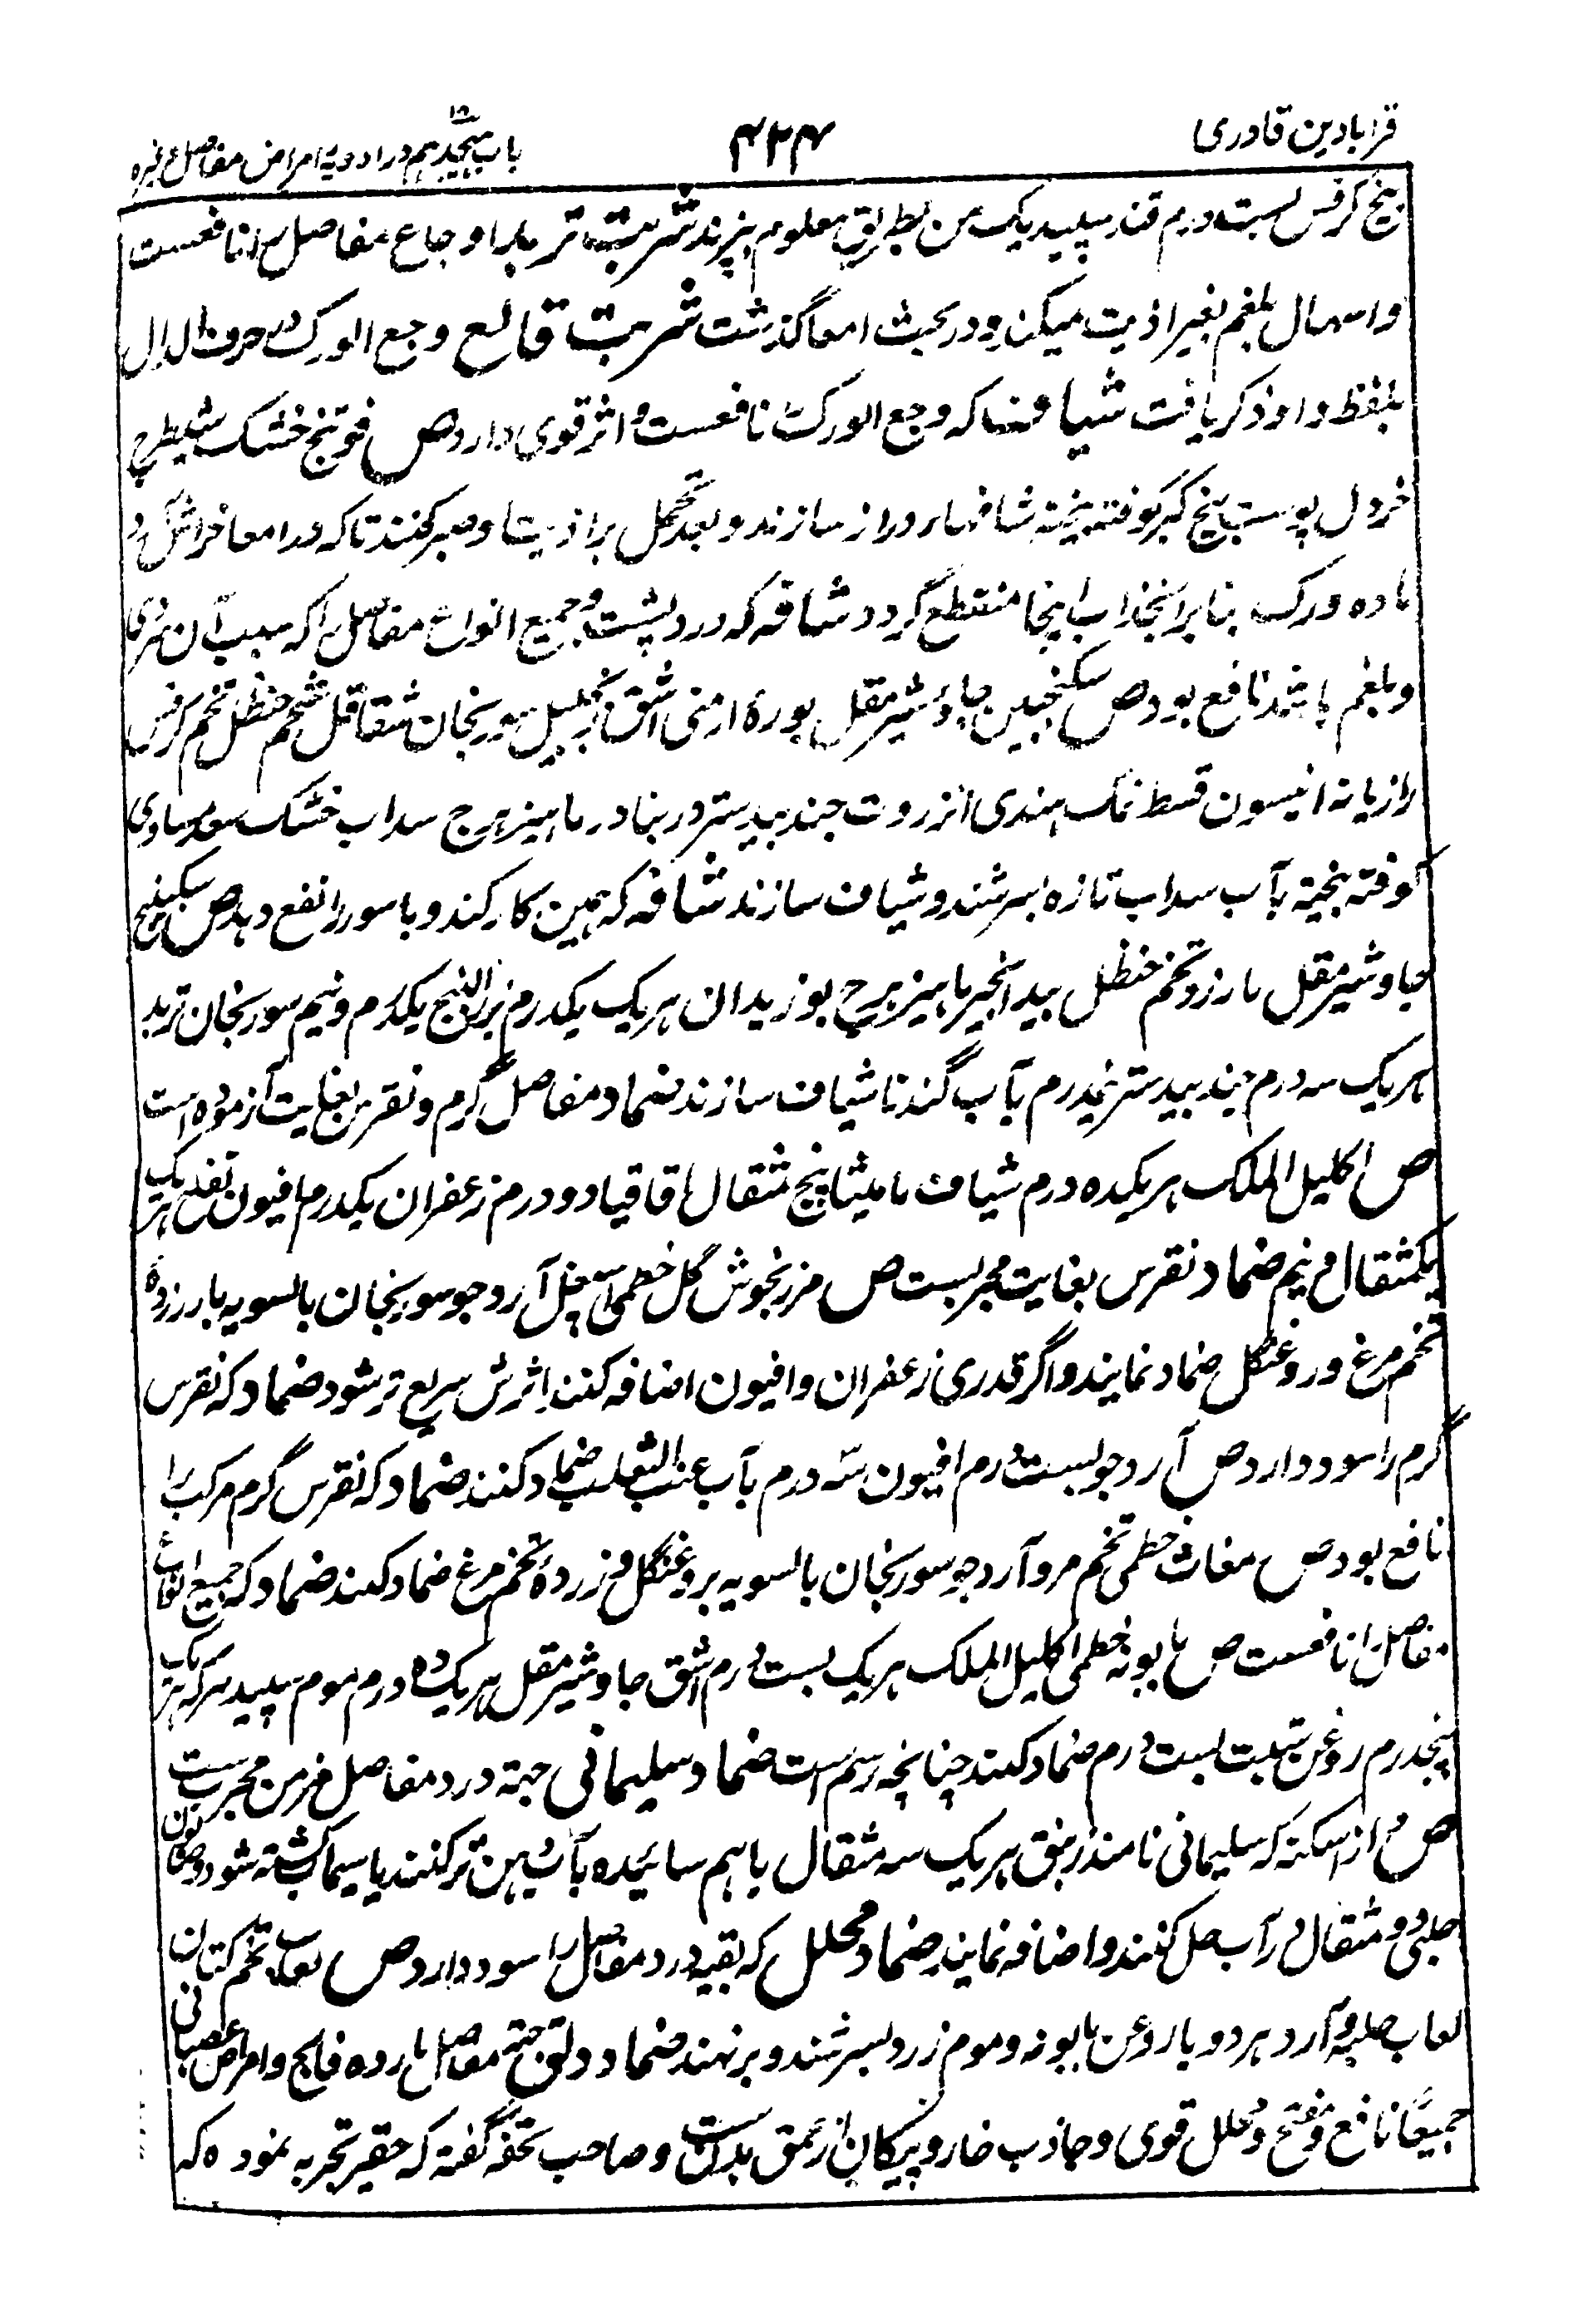 قرابادین قادری
۴۲۴
باب هیجدهم در ادویه امراض مفاصل و غیره
بیخ کرفس بست درم قند سپید یک من بطریق معلوم بپزند شربت تربد اوجاع مفاصل را نافعست
و اسهال بلغم بغیر اذیت میکند و در بحث امعا گذشت شربت قالع وجع الورک در حرف الدال
بلفظ دوا ذکر یافت شیاف که وجع الورک را نافعست و اثر قوی دارد ص فوتنج خشک شیطرج
خردل پوست بیخ کبر کوفته بیخته شافها دراز سازند و بعد تحمل بر اذیت او صبر کنند تا که در امعا خراش و
ماده ورک بنابر انجذاب اینجا منقطع گردد شافه که درد پشت و جمیع انواع مفاصل را که سبب آن سردی
و بلغم باشد نافع بود ص سکنجبین جاوشیر مقل بوره ارمنی اشق زنجبیل سورنجان شقاقل شحم حنظل تخم کرفس
رازیانه انیسون قسط نمک هندی انزروت جندبیدستر زرنباد ماهیزهرج سداب خشک سعد مساوی
کوفته بیخته بآب سداب تازه بسرشند و شیاف سازند شافه که همین کار کند و باسور را نفع دهد ص سکبینج
جاوشیر مقل بارزد تخم حنظل بیدانجیر ماهیزهرج بوزیدان هر یک یکدرم بزرالبنج یکدرم و نیم سورنجان تربد
هر یک سه درم جندبیدستر نیمدرم بآب گندنا شیاف سازند ضماد مفاصل گرم و نقرس بغایت آزموده است
ص اکلیل الملک هر یک ده درم شیاف مامیثا پنج مثقال اقاقیا دو درم زعفران یکدرم افیون تفاح هر یک
یکمثقال و نیم ضماد نقرس بغایت مجربست ص مرزنجوش گل خطمی آس چغل آرد جو سورنجان بالسویه با زرده
تخم مرغ و روغنگل ضماد نمایند و اگر قدری زعفران و افیون اضافه کنند اثرش سریع تر شود ضماد که نقرس
گرم را سود دارد ص آرد جو بست درم افیون سه درم بآب عنب الثعلب ضماد کنند ضماد که نقرس گرم مرکب را
نافع بود ص مغاث خطمی تخم مرو آرد جو سورنجان بالسویه بروغنگل و زرده تخم مرغ ضماد کنند ضماد که جمیع انواع
مفاصل را نافعست ص بابونه خطمی اکلیل الملک هر یک بست درم اشق جاوشیر مقل هر یک ده درم موم سپید سرکه هر یک
پنجدرم روغن شبت بست درم ضماد کنند چنانچه رسم است ضماد سلیمانی جهة درد مفاصل مزمن مجربست
ص از اسکنه که سلیمانی نامند زیبق هر یک سه مثقال باهم سائیده بآب دهن تر کنند یا سیماب کشته شود و صابون
حلبی دو مثقال در آب حل کنند و اضافه نمایند ضماد محلل که بقیه درد مفاصل را سود دارد ص لعاب تخم کتان
لعاب حلبه و آرد هر دو با روغن بابونه و موم زرد بسرشند و برنهند ضماد دلق جهة مفاصل بارده فالج و امراض عصبانی
جمیعًا نافع و مفتح و محلل قوی و جاذب خار و پیکان از عمق بدنست و صاحب تحفه گفته که حقیر تجربه نموده که